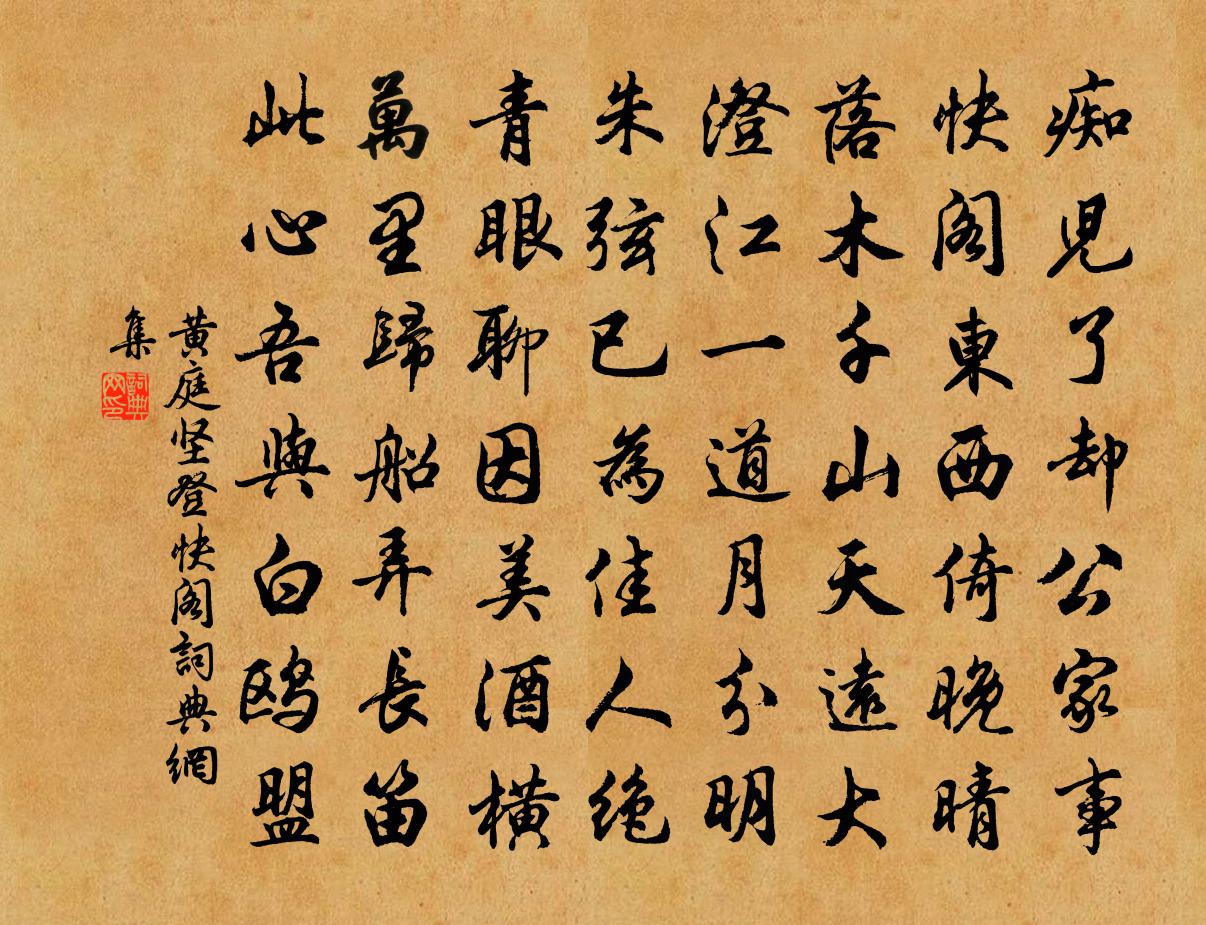 痴児了却公家事
快阁東西倚晚晴
落木千山天遠大
澄江一道月分明
朱弦已為佳人绝
青眼聊因美酒橫
萬里歸船弄長笛
此心吾與白鸥盟
黄庭坚登快阁詞典網
集
詞典
网印